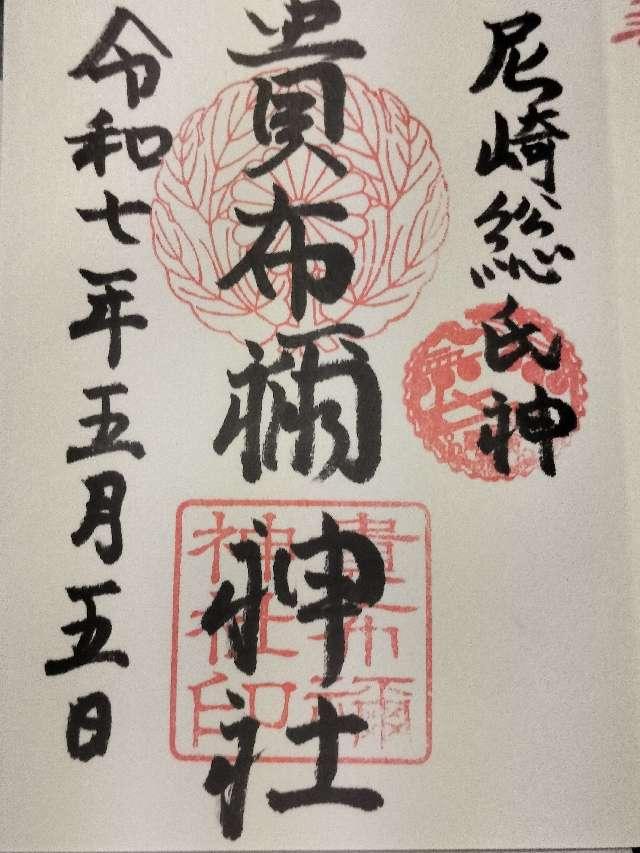 尼崎総氏神
貴布禰神社
貴布禰
神社印
令和七年五月五日